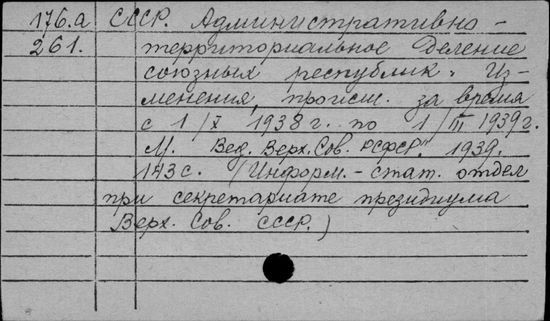 176.а СССР. Административно-
261. территориальное деление
союзных республик. Из-
менения, происш. за время
с 1/X 1938 г. по 1/III 1939 г.
М. "Вед. Верх. Сов. РСФСР." 1939.
143 с. (Информ.-стат. отдел
при секретариате президиума
Верх. Сов. СССР.)